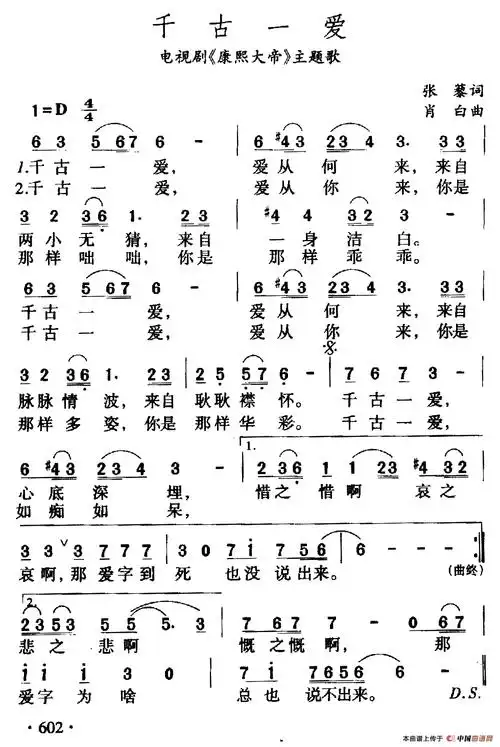 千古一爱
电视剧《康熙大帝》主题歌
张藜词
1=D 4/4
肖白曲
6 3 5 6 7 6 - | 6 #4 3 2 3 4 3· 3 3
1.千古一爱， 爱从何来，来自
2.千古一爱， 爱从你来，你是
3 2 3 6 1· 2 3 | #4 3 3 2 2 -
两小无猜，来自 一身洁白。
那样咄咄，你是 那样乖乖。
6 3 5 6 7 6 - | 6 #4 3 2 3 4 3· 2 3
千古一爱， 爱从何来，来自
千古一爱， 爱从你来，你是
3 2 3 6 1· 2 3 | 2 2 5 7 6 - | 7 6 7 3 -
脉脉情波，来自耿耿襟怀。千古一爱，
那样多姿，你是那样华彩。千古一爱，
6 #4 3 2 3 4 3 - | 1. 2 3 6 1 1 2 3 | #4 3 2
心底深埋， 惜之惜啊 哀之
如痴如呆，
3 3 ∨ 3 7 7 7 | 3 0 7 i 7 5 6 | 6 - - - :||
哀啊，那爱字到死 也没说出来。 (曲终)
2.
2 3 5 3 5 5 · | 2 3 2 3 5 5· 3
悲之悲啊 慨之慨啊， 那
i i i 3 0 | 7 i 7 6 5 6 6 -
爱字为啥 总也说不出来。 D.S.
· 602 ·
本曲谱上传于 中国曲谱网